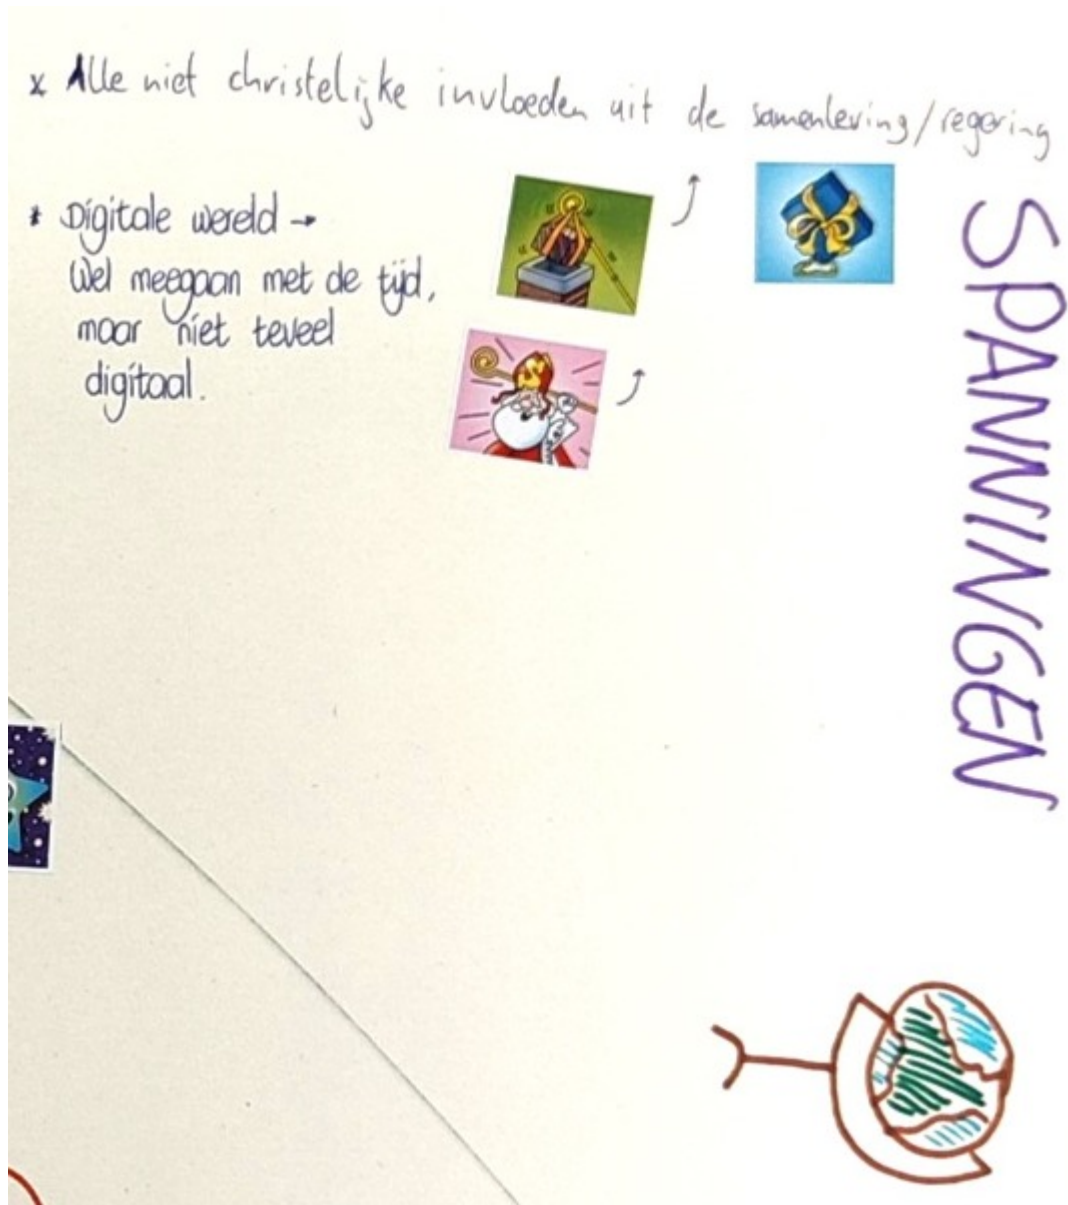 x Alle niet christelijke invloeden uit de samenleving/regering
* Digitale wereld →
Wel meegaan met de tijd,
maar niet teveel
digitaal.
SPANNINGEN